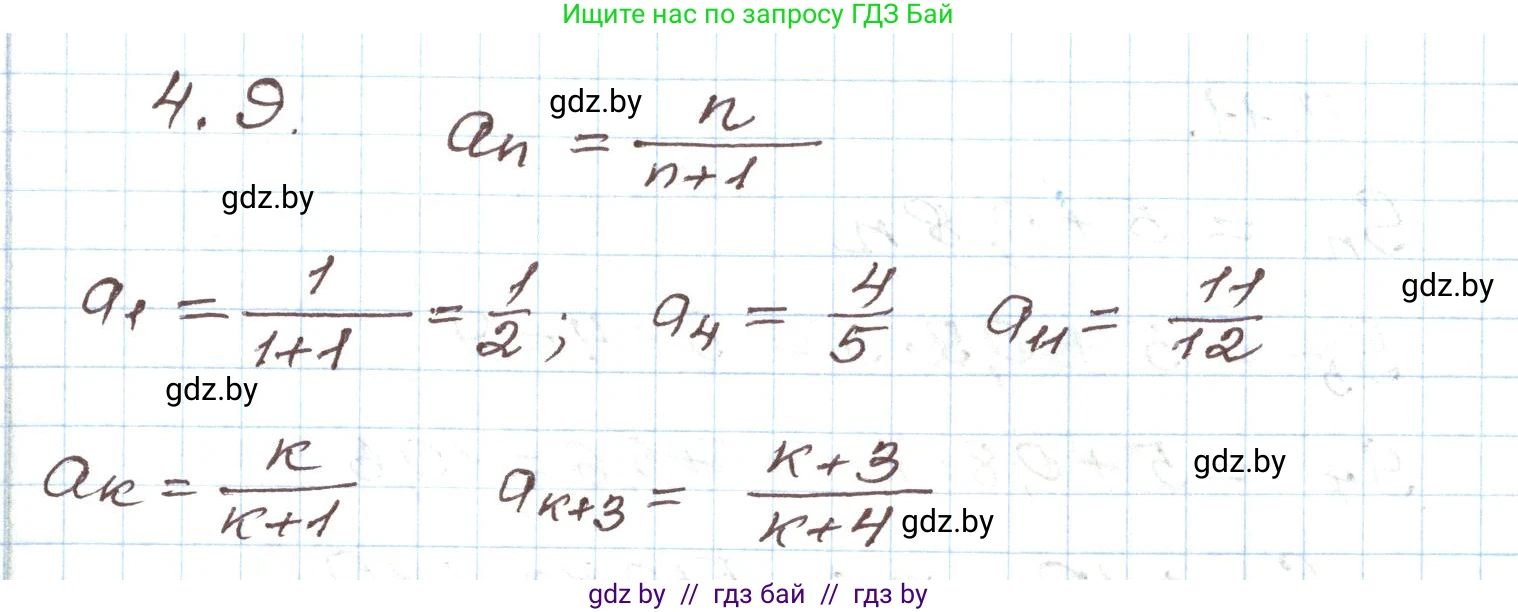 Ищите нас по запросу ГДЗ Бай
4.9. aₙ = n/(n+1)
gdz.by
gdz.by
a₁ = 1/(1+1) = 1/2; a₄ = 4/5 a₁₁ = 11/12
gdz.by
gdz.by
aₖ = к/(к+1) aₖ₊₃ = (к+3)/(к+4)
gdz.by
gdz.by
gdz by // гдз бай // гдз by